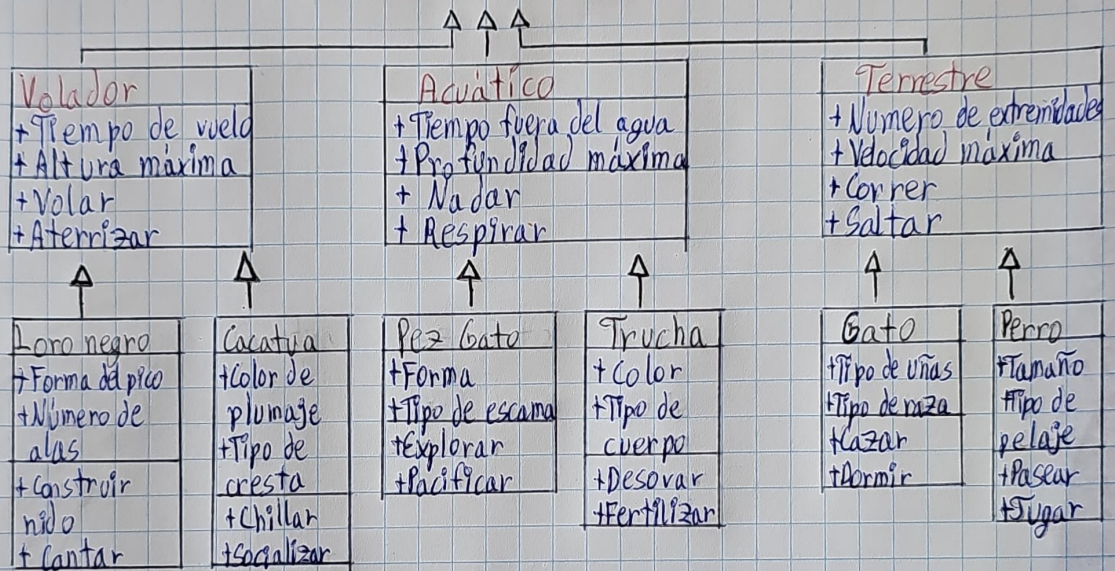 Volador
+Tiempo de vuelo
+Altura máxima
+Volar
+Aterrizar
Acuático
+Tiempo fuera del agua
+Profundidad máxima
+ Nadar
+ Respirar
Terrestre
+Numero de extremidades
+Velocidad máxima
+Correr
+Saltar
Loro negro
+Forma del pico
+Número de
alas
+Construir
nido
+ Cantar
Cacatua
+Color de
plumaje
+Tipo de
cresta
+Chillar
+Socializar
Pez Gato
+Forma
+Tipo de escama
+Explorar
+Pacificar
Trucha
+Color
+Tipo de
cuerpo
+Desovar
+Fertilizar
Gato
+Tipo de uñas
+Tipo de raza
+Cazar
+Dormir
Perro
+Tamaño
+Tipo de
pelaje
+Pasear
+Jugar